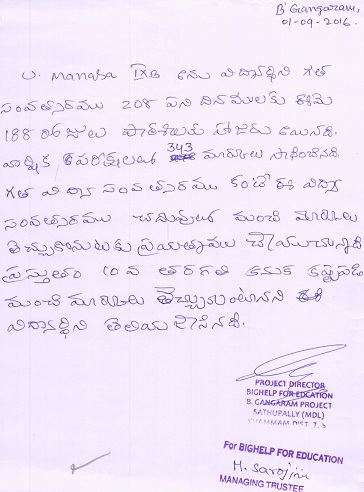 B' Gangaram,
01-09-2016.
U. Manasa IXB అను విద్యార్థిని గత
సంవత్సరము 208 పని దినములకు ఈమె
188 రోజులు పాఠశాలకు హాజరు అయినది.
వార్షిక పరీక్షలలో 343 మార్కులు సాధించినది.
గత విద్యా సంవత్సరము కంటే ఈ విద్యా
సంవత్సరము చదువులో మంచి మార్కులు
తెచ్చుకొనుటకు ప్రయత్నము చేయుచున్నది
ప్రస్తుతం 10 వ తరగతి కనుక కష్టపడి
మంచి మార్కులు తెచ్చుకుంటానని
విద్యార్థిని తెలియజేసినది.
PROJECT DIRECTOR
BIGHELP FOR EDCATION
B. GANGARAM PROJECT
SATHUPALLY (MDL)
KHAMMAM DIST. T.S
For BIGHELP FOR EDUCATION
H. Sarojini
MANAGING TRUSTEE